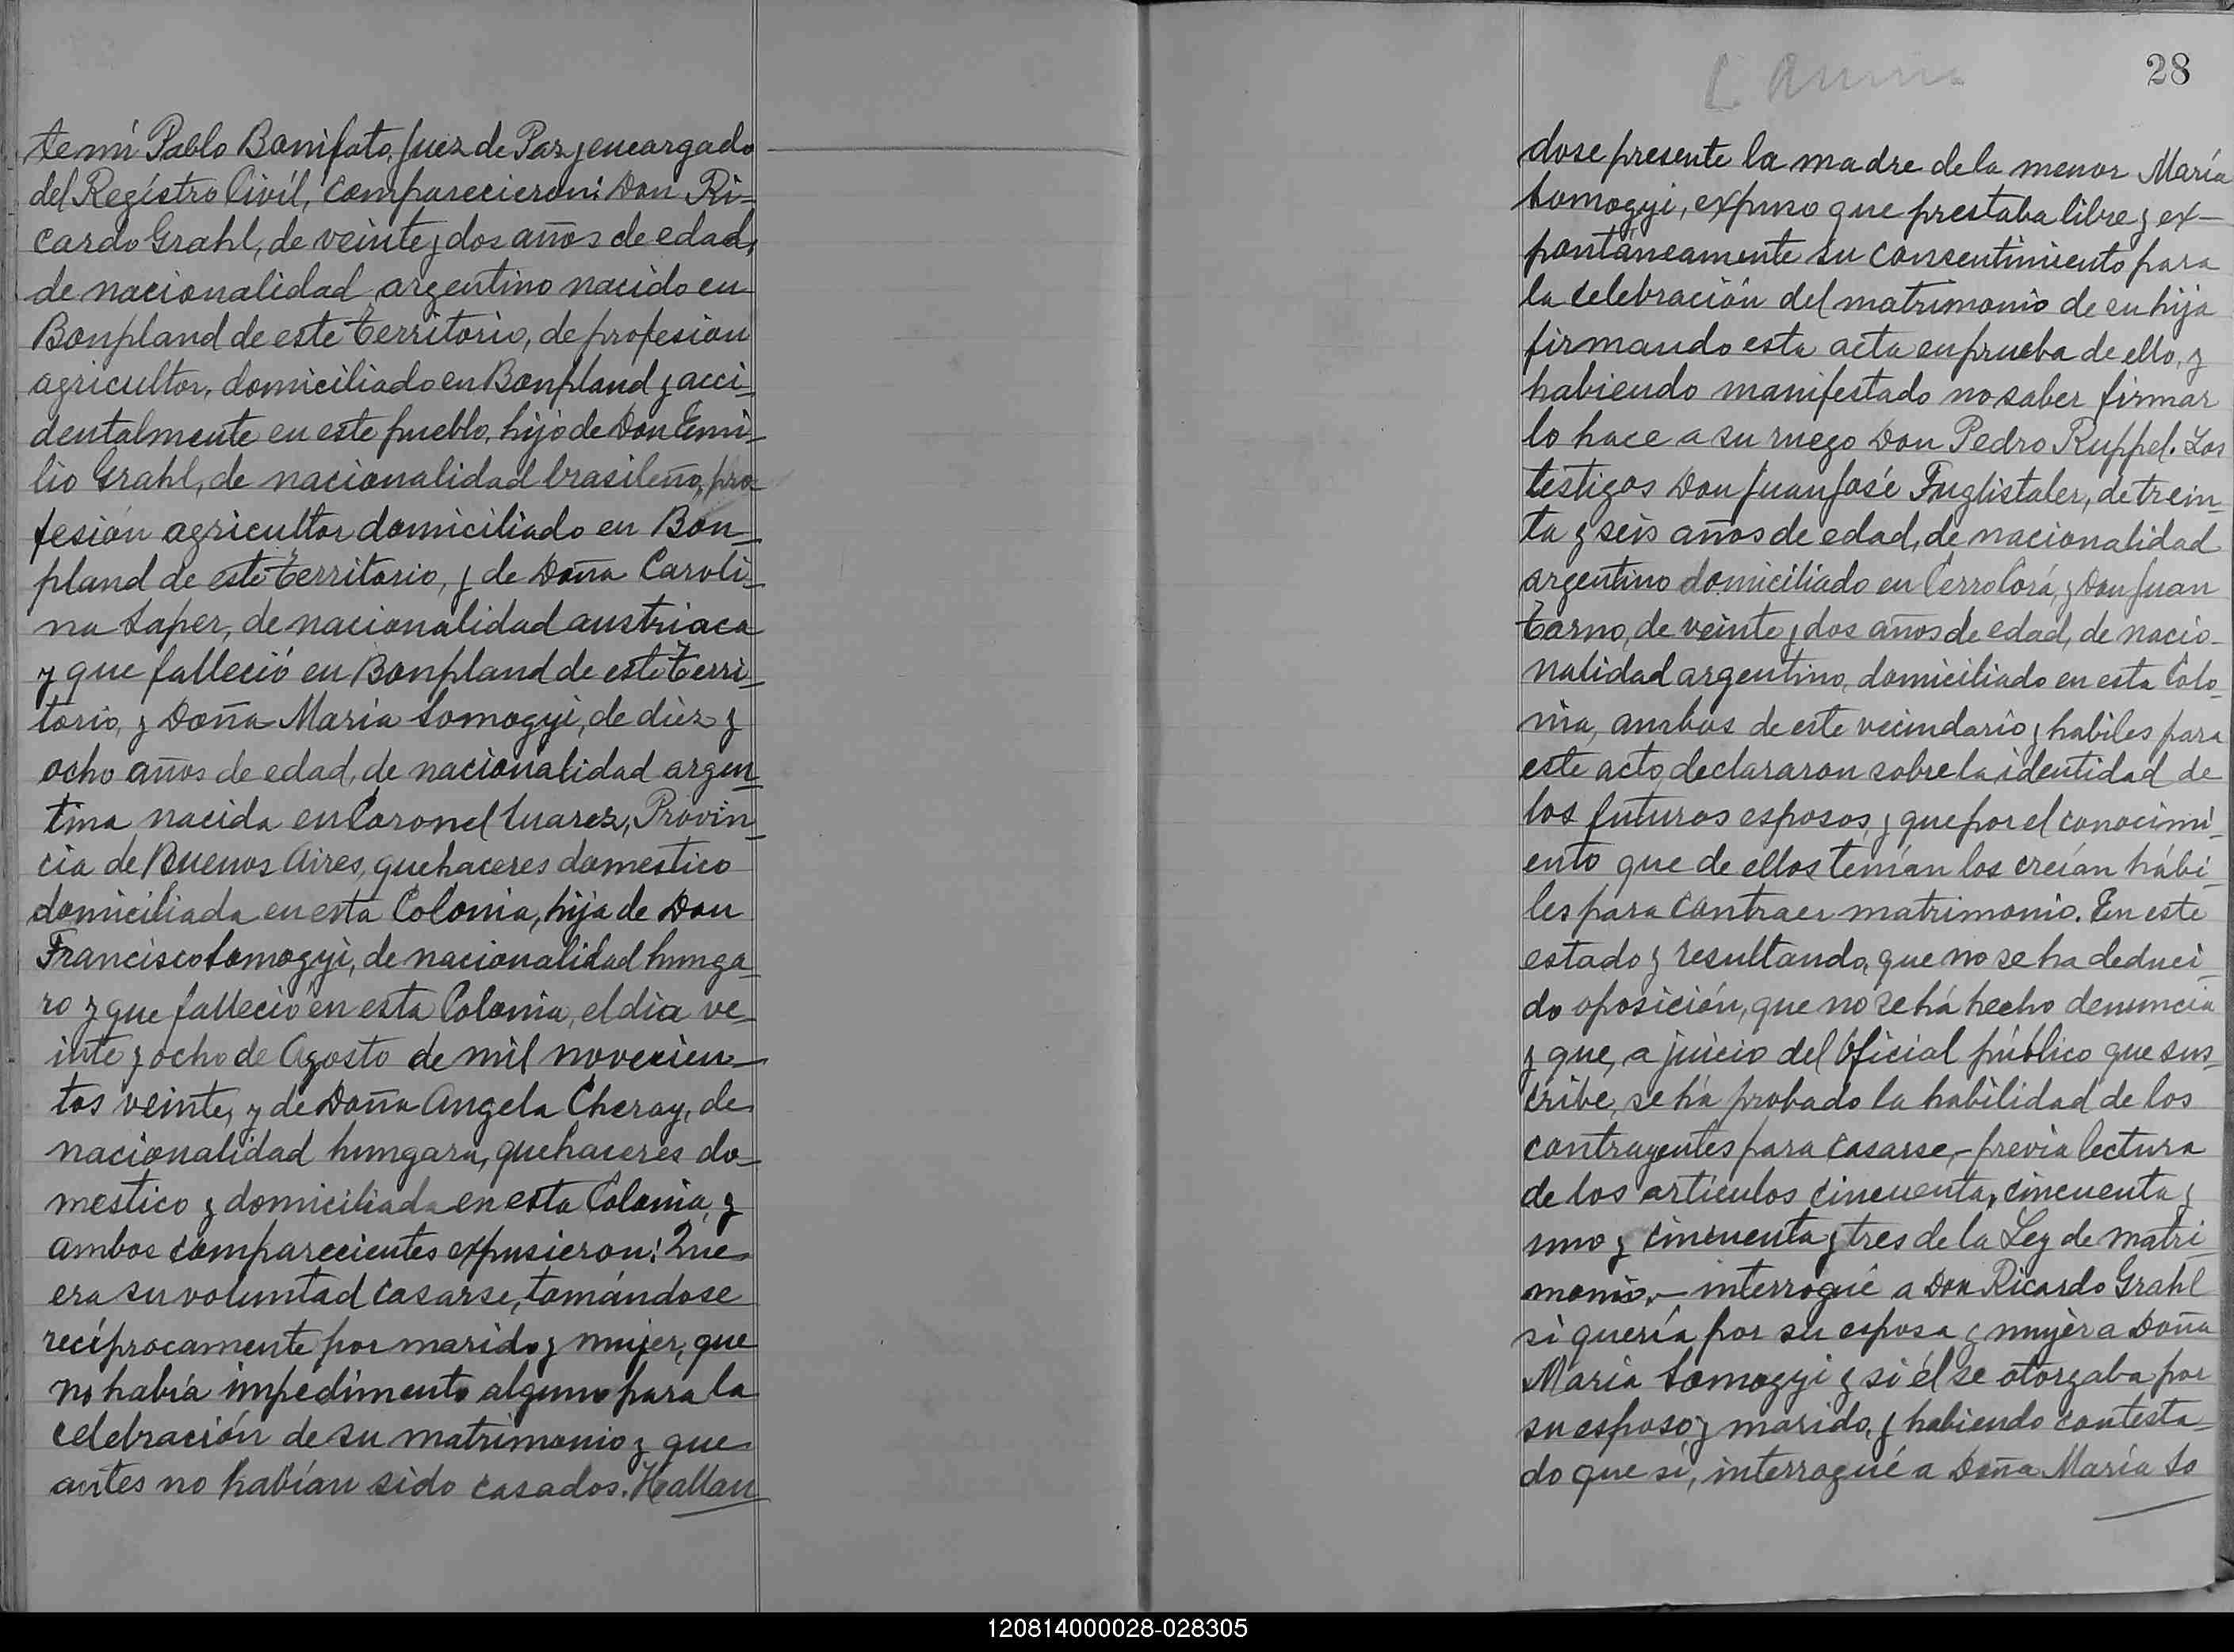 te mi Pablo Bonifato, Juez de Paz y encargado
del Regístro Civíl, comparecieron: Don Ri-
cardo Grahl, de veinte y dos años de edad,
de nacionalidad argentino nacido en
Bonpland de este territorio, de profesion
agricultor, domiciliado en Bonpland y acci-
dentalmente en este pueblo, hijo de Don Emi-
lio Grahl, de nacionalidad brasileño, pro-
fesión agricultor domiciliado en Bon-
pland de este territorio, y de Doña Caroli-
na Saper, de nacionalidad austriaca
y que falleció en Bonpland de este terri-
torio, y Doña María Somogyi, de diez y
ocho años de edad, de nacionalidad argen-
tina nacida en Coronel Suarez, Provin-
cia de Buenos Aires, quehaceres domestico
domiciliada en esta Colonia, hija de Don
Francisco Somogyi, de nacionalidad hunga-
ro y que falleció en esta Colonia, el dia ve-
inte y ocho de Agosto de mil novecien-
tos veinte, y de Doña Angela Cheray, de
nacionalidad hungara, quehaceres do-
mestico y domiciliada en esta Colonia, y
ambos comparecientes expusieron: Que
era su voluntad casarse, tomándose
recíprocamente por marido y mujer, que
no había impedimento alguno para la
celebración de su matrimonio y que
antes no habían sido casados. Hallan
28
dose presente la madre de la menor María
Somogyi, expuso que prestaba libre y ex-
pontáneamente su consentimiento para
la celebración del matrimonio de su hija
firmando esta acta en prueba de ello, y
habiendo manifestado no saber firmar
lo hace a su ruego Don Pedro Ruppel. Los
testigos Don Juan José Fuglistaler, de trein-
ta y seis años de edad, de nacionalidad
argentino domiciliado en Cerro Corá, y Don Juan
Tarno, de veinte y dos años de edad, de nacio-
nalidad argentino, domiciliado en esta Colo-
nia, ambos de este vecindario y habiles para
este acto, declararon sobre la identidad de
los futuros esposos, y que por el conocimi-
ento que de ellos tenían los creían hábi-
les para contraer matrimonio. En este
estado y resultando, que no se ha deduci-
do oposición, que no se há hecho denuncia
y que, a juicio del Oficial público que sus-
cribe, se há probado la habilidad de los
contrayentes para casarse,- previa lectura
de los artículos cincuenta, cincuenta y
uno y cincuenta y tres de la Ley de matri-
monio.- interrogué a Don Ricardo Grahl
si quería por su esposa y mujer a Doña
María Somogyi y si él se otorgaba por
su esposo y marido, y habiendo contesta-
do que sí, interrogué a Doña María So
120814000028-028305